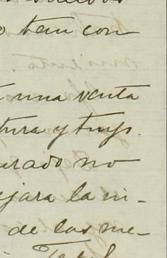 o tan con
una venta
tura y tuyo
urado no
ejara la in-
de las me-